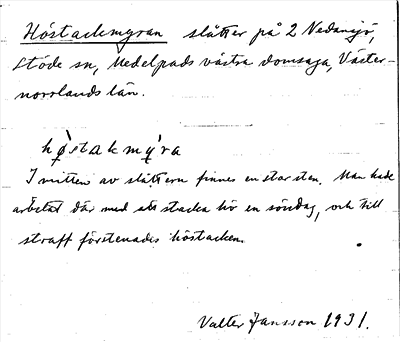 Höstackmyran slåtter på 2 Nedansjö,
Stöde sn, Medelpads västra domsaga, Väster-
norrlands län.
hø̀stakmý̀ra
I mitten av slåttern finnes en stor sten. Man hade
arbetat där med att stacka hö en söndag, och till
straff förstenades höstacken.
Valter Jansson 1931.